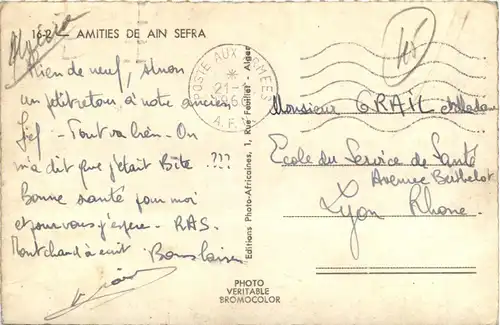 Algérie
16-2 - AMITIES DE AIN SEFRA
Rien de neuf, sinon
un petit retour à notre ancien
fief - Tout va bien - On
m'a dit que j'étais Bite .???
Bonne santé pour moi
et pour vous j'espère - RAS.
Montchand a écrit
POSTE AUX ARMEES
*
21-
A.F.
Editions Photo-Africaines, 1, Rue Feuillet - Alger
PHOTO
VERITABLE
BROMOCOLOR
Monsieur GRAIL
Ecole du Service de Santé
Avenue Berthelot
Lyon Rhone.